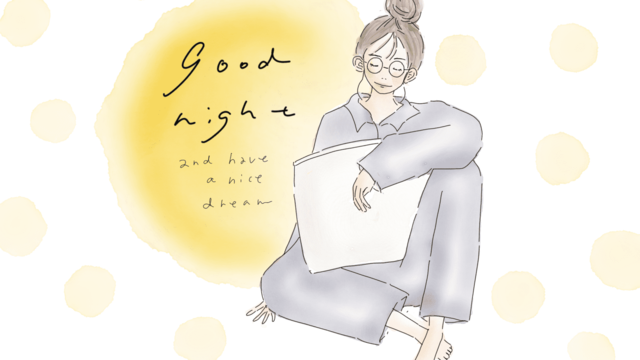 Good
night
and have
a nice
dream